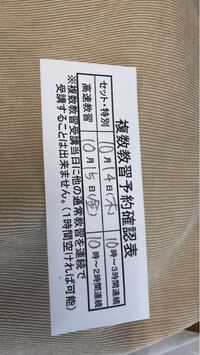 複数教習予約確認表
セット・特別 10月14日(木) 10時~3時間連続
高速教習 10月15日(金) 10時~2時間連続
※複数教習受講当日に他の通常教習を連続で
受講することは出来ません。(1時間空ければ可能)